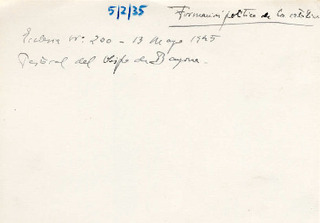 5/2/35
Formación política de los católicos
Ecclesia Nº 200 - 13 Mayo 1945
Pastoral del Obispo de Bayona.